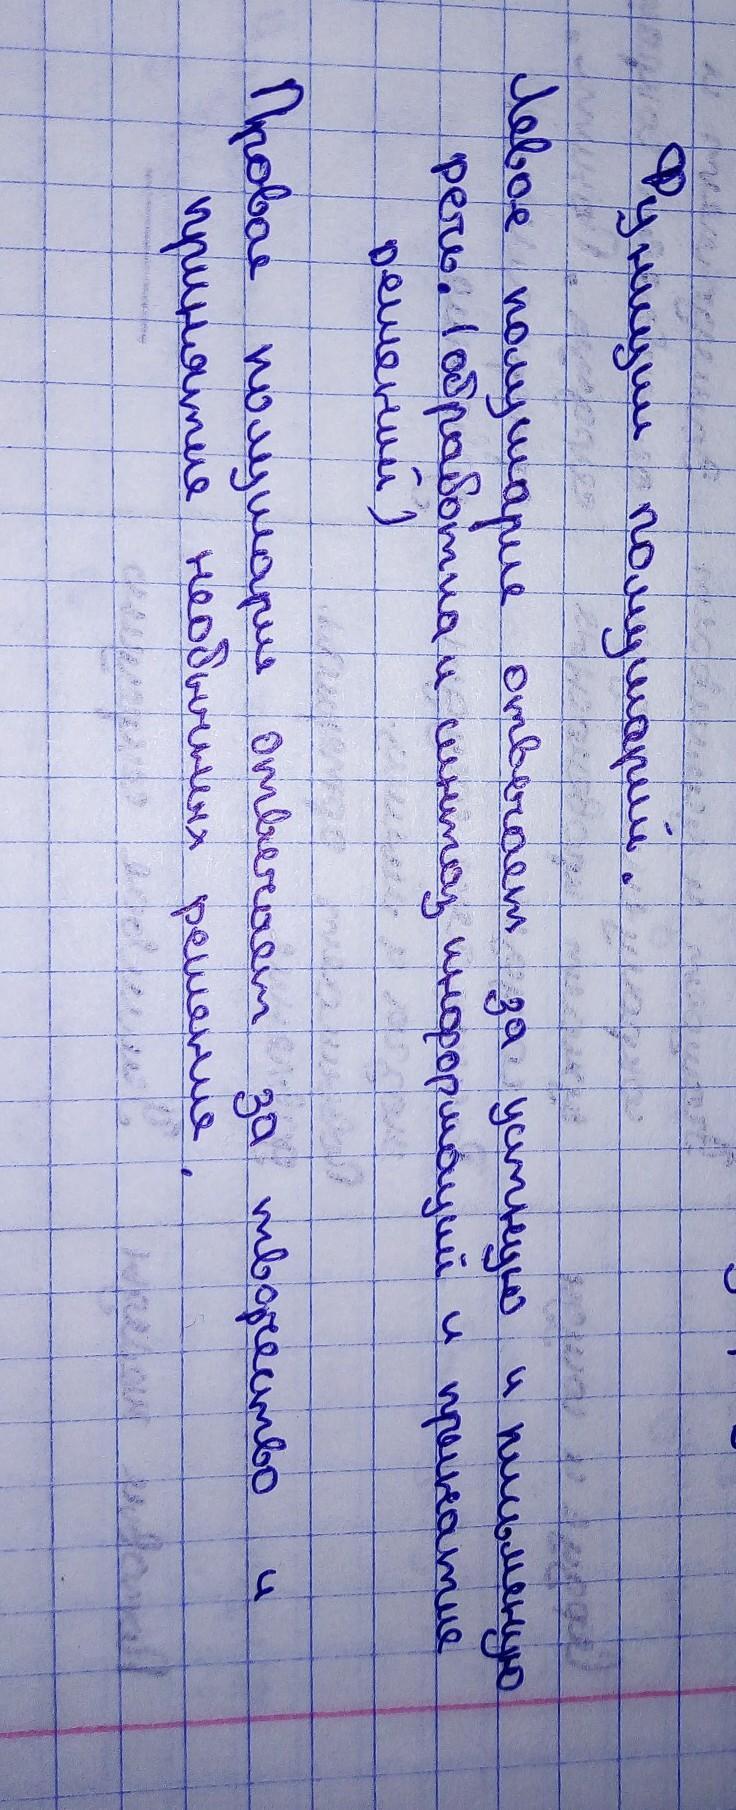 Функции полушарий.
Левое полушарие отвечает за устную и письменую
речь. (обработка и синтаз информаций и принятие
решений)
Провое полушари отвечает за творчество и
принятие необычних решение,